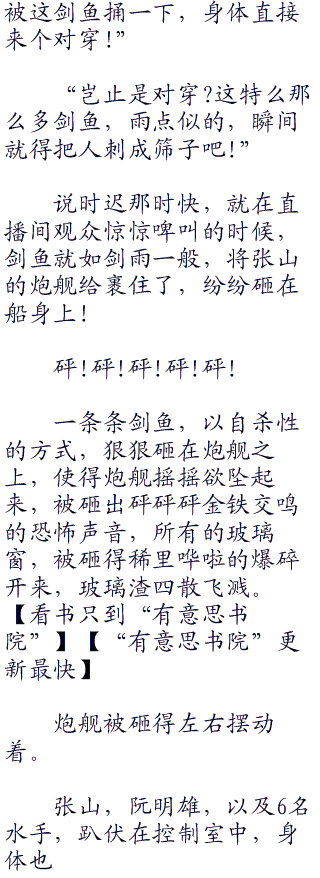 被这剑鱼捅一下，身体直接
来个对穿!”
“岂止是对穿?这特么那
么多剑鱼，雨点似的，瞬间
就得把人刺成筛子吧!”
说时迟那时快，就在直
播间观众惊惊啤叫的时候，
剑鱼就如剑雨一般，将张山
的炮舰给裹住了，纷纷砸在
船身上!
砰!砰!砰!砰!砰!
一条条剑鱼，以自杀性
的方式，狠狠砸在炮舰之
上，使得炮舰摇摇欲坠起
来，被砸出砰砰砰金铁交鸣
的恐怖声音，所有的玻璃
窗，被砸得稀里哗啦的爆碎
开来，玻璃渣四散飞溅。
【看书只到“有意思书
院”】【“有意思书院”更
新最快】
炮舰被砸得左右摆动
着。
张山，阮明雄，以及6名
水手，趴伏在控制室中，身
体也